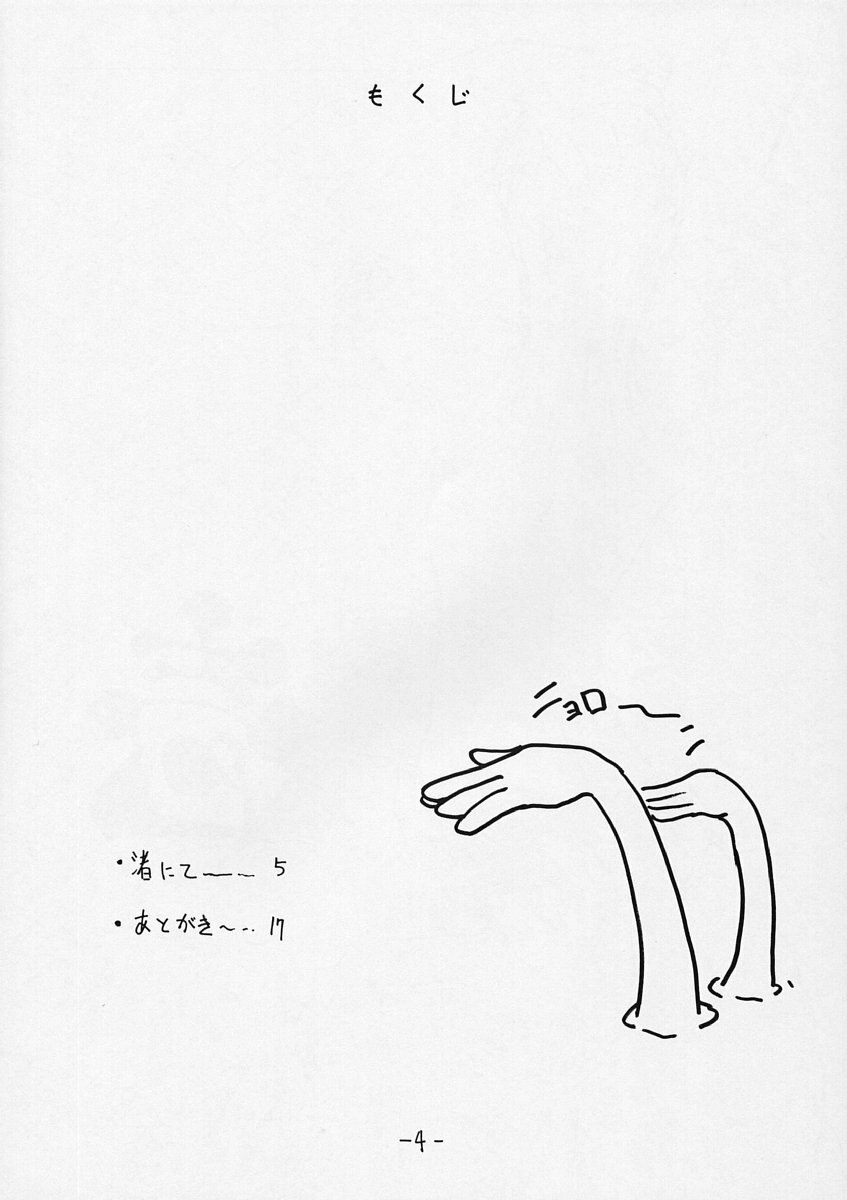 もくじ
ニョロ〜
・渚にて——— 5
・あとがき〜‥ 17
-4-